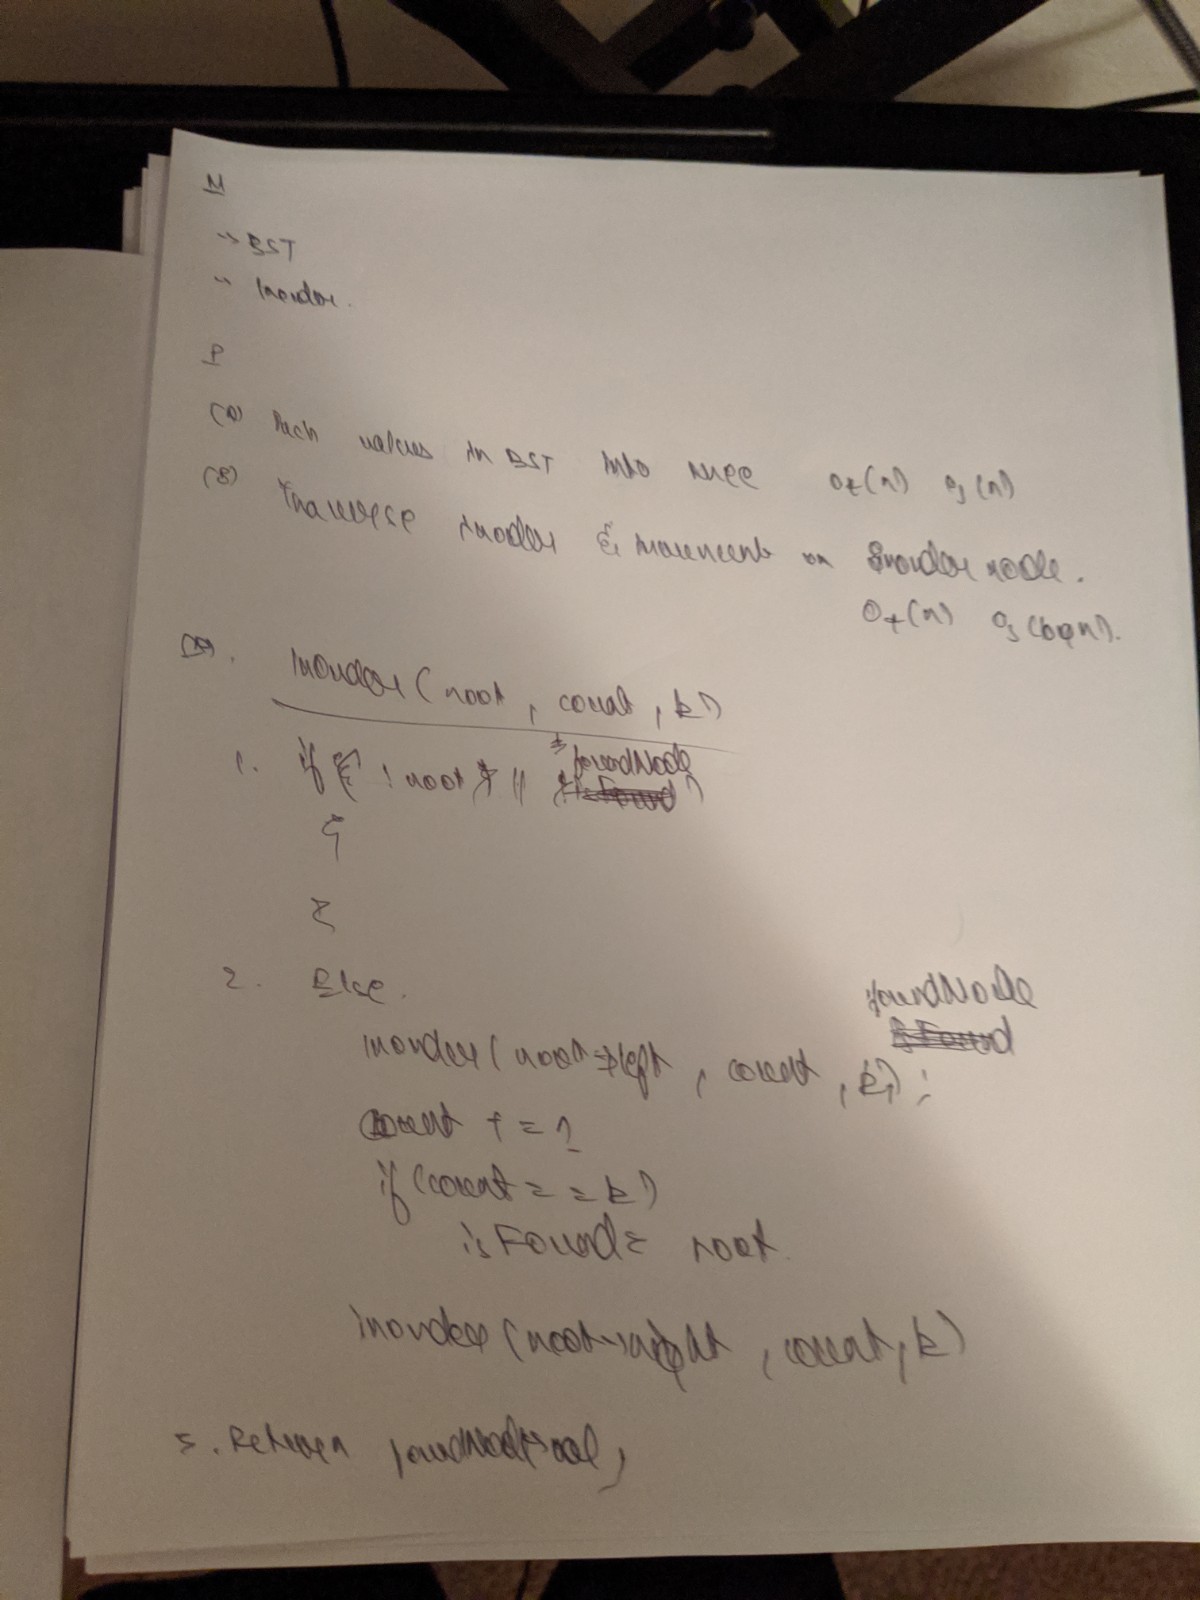 M
→ BST
→ Inorder.
P
(A) Push values in BST into
O_t(n) O_s(n)
(B) Traverse inorder & increment on inorder node.
O_t(n) O_s(logn).
Inorder (root, count, k)
foundNode
1. if ( ! root || )
{
}
2. Else.
foundNode
inorder (root→left, count, k);
count += 1
if (count == k)
isFound = root.
inorder (root→right, count, k)
3. Return foundNode→val;